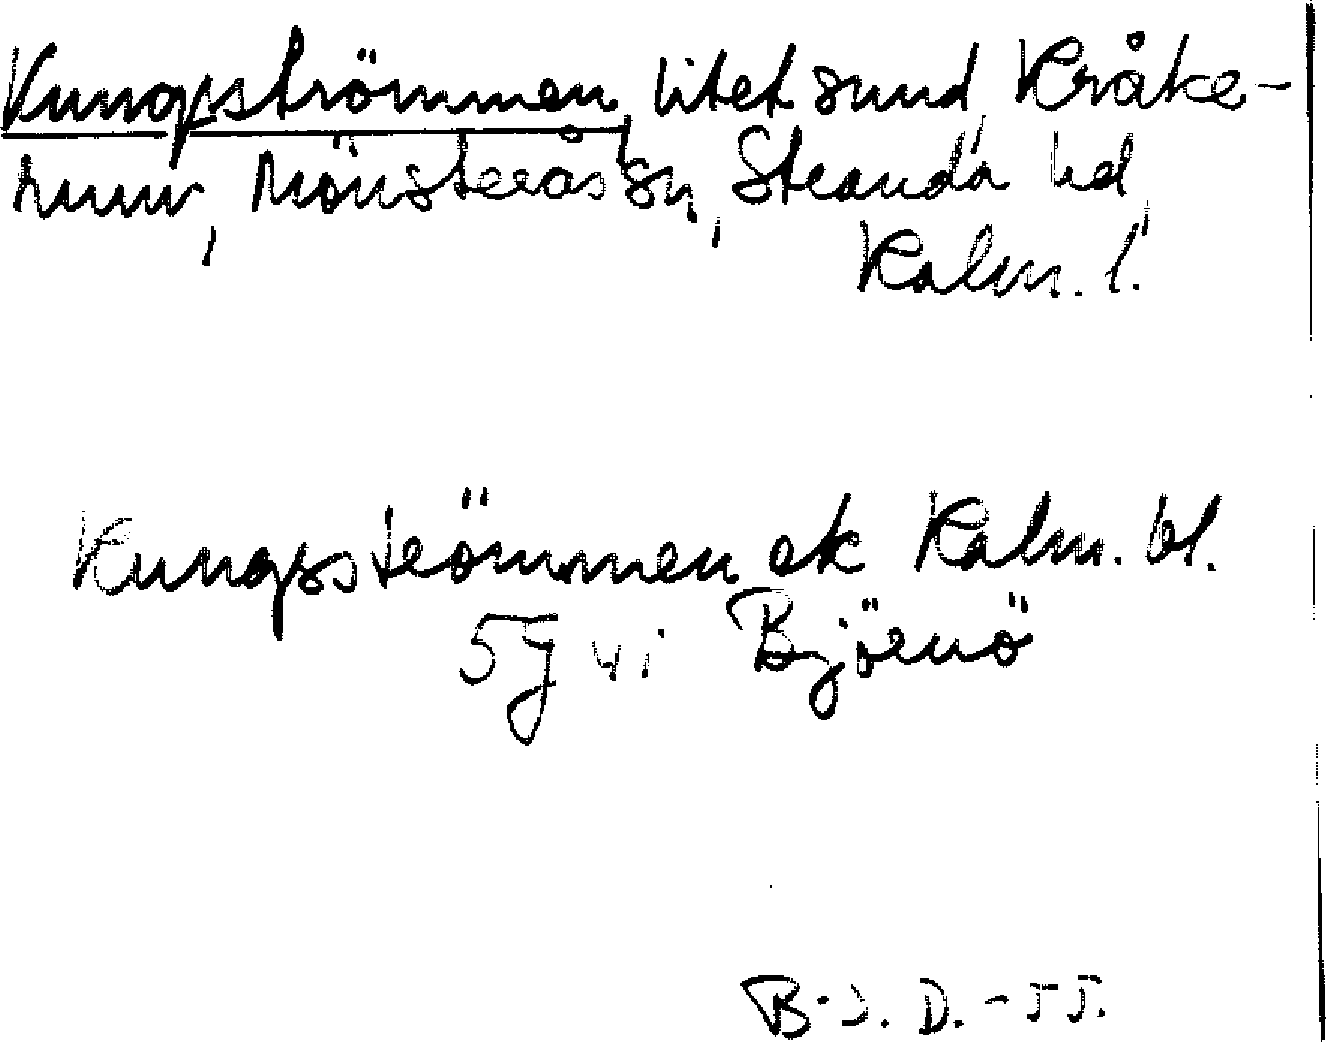 Kungsströmmen, litet sund, Kråke-
rum, Mönsterås sn, Stranda hd,
Kalm. l.
Kungsströmmen ek Kalm. bl.
5g vi Björnö
B-J. D. -55.